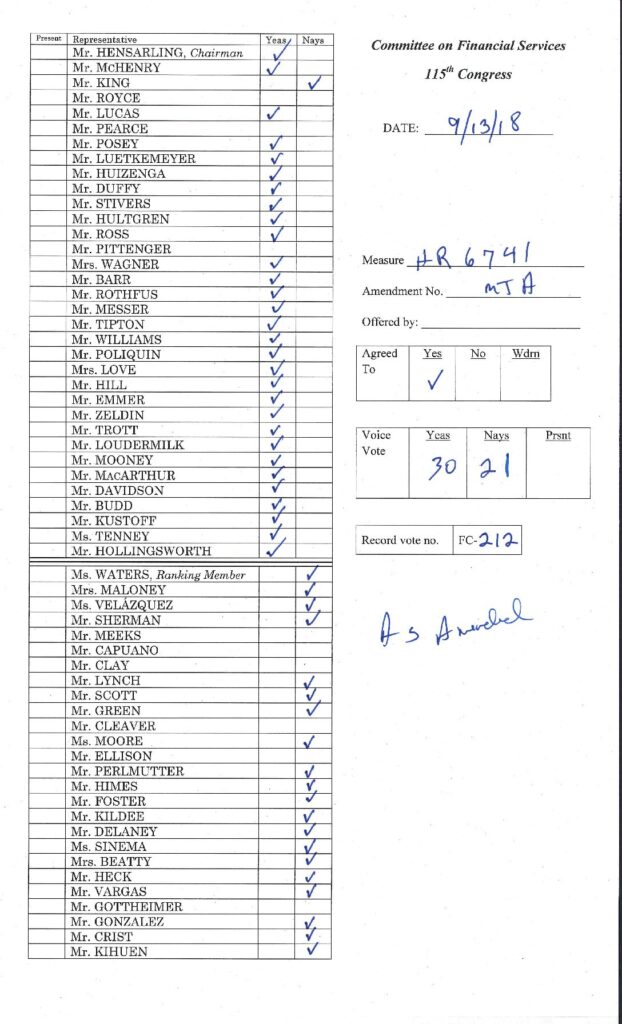 Present Representative Yeas Nays
Mr. HENSARLING, Chairman ✓
Mr. McHENRY ✓
Mr. KING ✓
Mr. ROYCE
Mr. LUCAS ✓
Mr. PEARCE
Mr. POSEY ✓
Mr. LUETKEMEYER ✓
Mr. HUIZENGA ✓
Mr. DUFFY ✓
Mr. STIVERS ✓
Mr. HULTGREN ✓
Mr. ROSS ✓
Mr. PITTENGER
Mrs. WAGNER ✓
Mr. BARR ✓
Mr. ROTHFUS ✓
Mr. MESSER ✓
Mr. TIPTON ✓
Mr. WILLIAMS ✓
Mr. POLIQUIN ✓
Mrs. LOVE ✓
Mr. HILL ✓
Mr. EMMER ✓
Mr. ZELDIN ✓
Mr. TROTT ✓
Mr. LOUDERMILK ✓
Mr. MOONEY ✓
Mr. MacARTHUR ✓
Mr. DAVIDSON ✓
Mr. BUDD ✓
Mr. KUSTOFF ✓
Ms. TENNEY ✓
Mr. HOLLINGSWORTH ✓
Ms. WATERS, Ranking Member ✓
Mrs. MALONEY ✓
Ms. VELÁZQUEZ ✓
Mr. SHERMAN ✓
Mr. MEEKS
Mr. CAPUANO
Mr. CLAY
Mr. LYNCH ✓
Mr. SCOTT ✓
Mr. GREEN ✓
Mr. CLEAVER
Ms. MOORE ✓
Mr. ELLISON
Mr. PERLMUTTER ✓
Mr. HIMES ✓
Mr. FOSTER ✓
Mr. KILDEE ✓
Mr. DELANEY ✓
Ms. SINEMA ✓
Mrs. BEATTY ✓
Mr. HECK ✓
Mr. VARGAS ✓
Mr. GOTTHEIMER
Mr. GONZALEZ ✓
Mr. CRIST ✓
Mr. KIHUEN ✓
Committee on Financial Services
115th Congress
DATE: 9/13/18
Measure HR 6741
Amendment No. MTA
Offered by:
Agreed To Yes No Wdrn
✓
Voice Vote Yeas Nays Prsnt
30 21
Record vote no. FC-212
As Amended